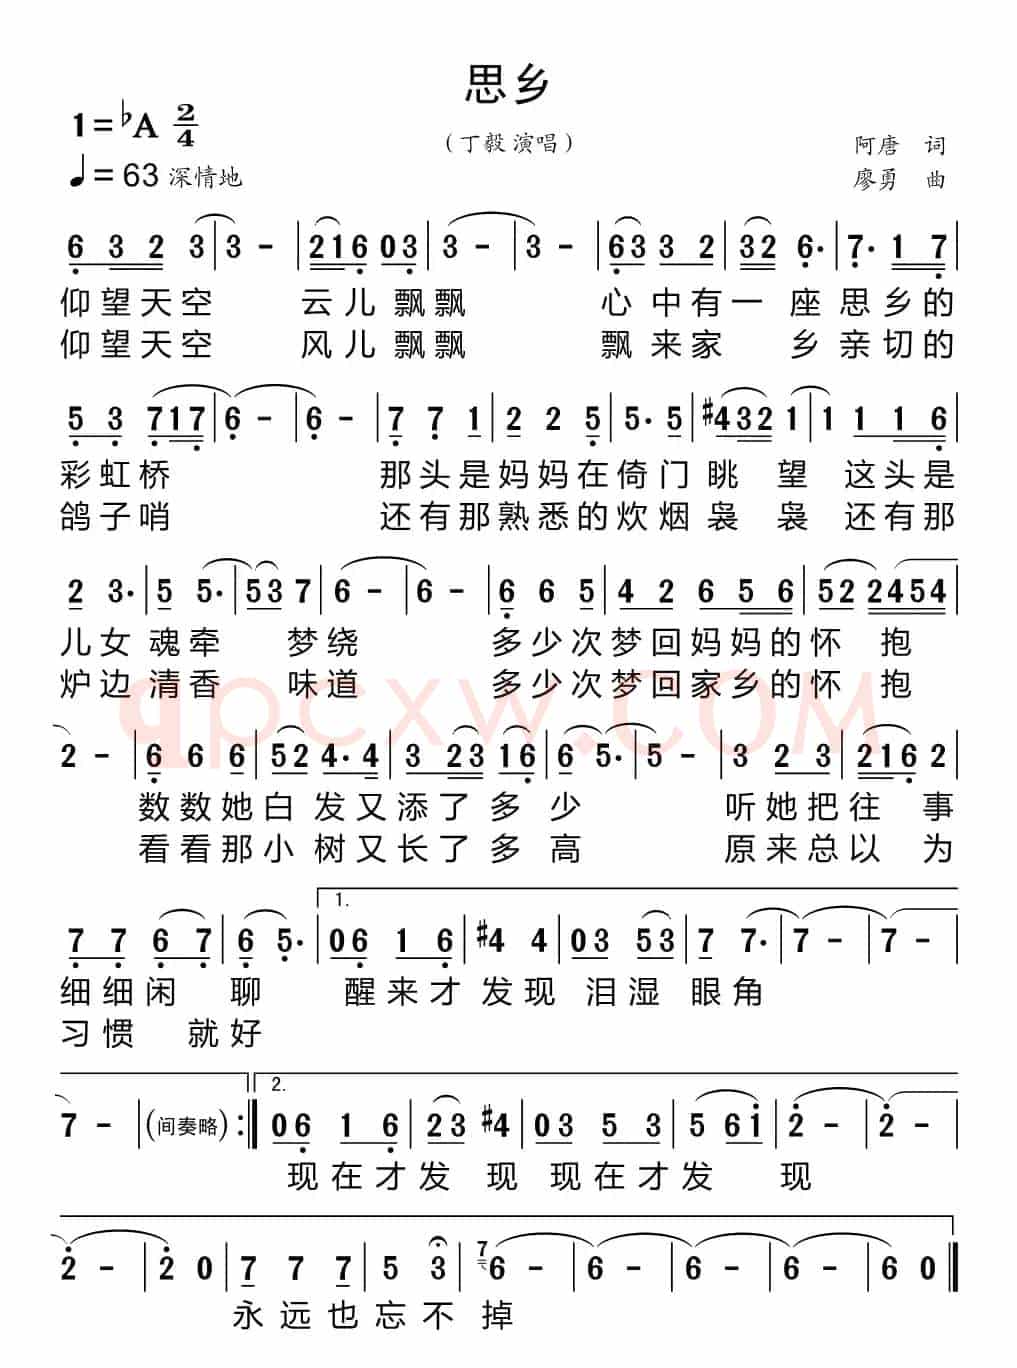 思乡
1=♭A 2/4
（丁毅 演唱）
阿唐 词
♩= 63 深情地
廖勇 曲
6 3 2 3 | 3 - | 2 1 6 0 3 | 3 - | 3 - | 6 3 3 2 | 3 2 6· | 7· 1 7 |
仰望天空 云儿飘飘 心中有一座思乡的
仰望天空 风儿飘飘 飘来家乡亲切的
5 3 7 1 7 | 6 - | 6 - | 7 7 1 | 2 2 5 | 5· 5 | #4 3 2 1 | 1 1 1 6 |
彩虹桥 那头是妈妈在倚门眺望这头是
鸽子哨 还有那熟悉的炊烟袅袅还有那
2 3· | 5 5· | 5 3 7 | 6 - | 6 - | 6 6 5 | 4 2 6 5 6 | 5 2 2 4 5 4 |
儿女魂牵梦绕 多少次梦回妈妈的怀抱
炉边清香味道 多少次梦回家乡的怀抱
qpcxw.COM
2 - | 6 6 6 | 5 2 4· 4 | 3 2 3 1 6 | 6 5· | 5 - | 3 2 3 | 2 1 6 2 |
数数她白发又添了多少 听她把往事
看看那小树又长了多高 原来总以为
1.
7 7 6 7 | 6 5· | 0 6 1 6 | #4 4 | 0 3 5 3 | 7 7· | 7 - | 7 - |
细细闲聊 醒来才发现泪湿眼角
习惯就好
2.
7 - | (间奏略) :‖ 0 6 1 6 | 2 3 #4 | 0 3 5 3 | 5 6 1 | 2 - | 2 - |
现在才发现现在才发现
2 - | 2 0 | 7 7 7 | 5 3 | 7 6 - | 6 - | 6 - | 6 - | 6 0 ‖
永远也忘不掉